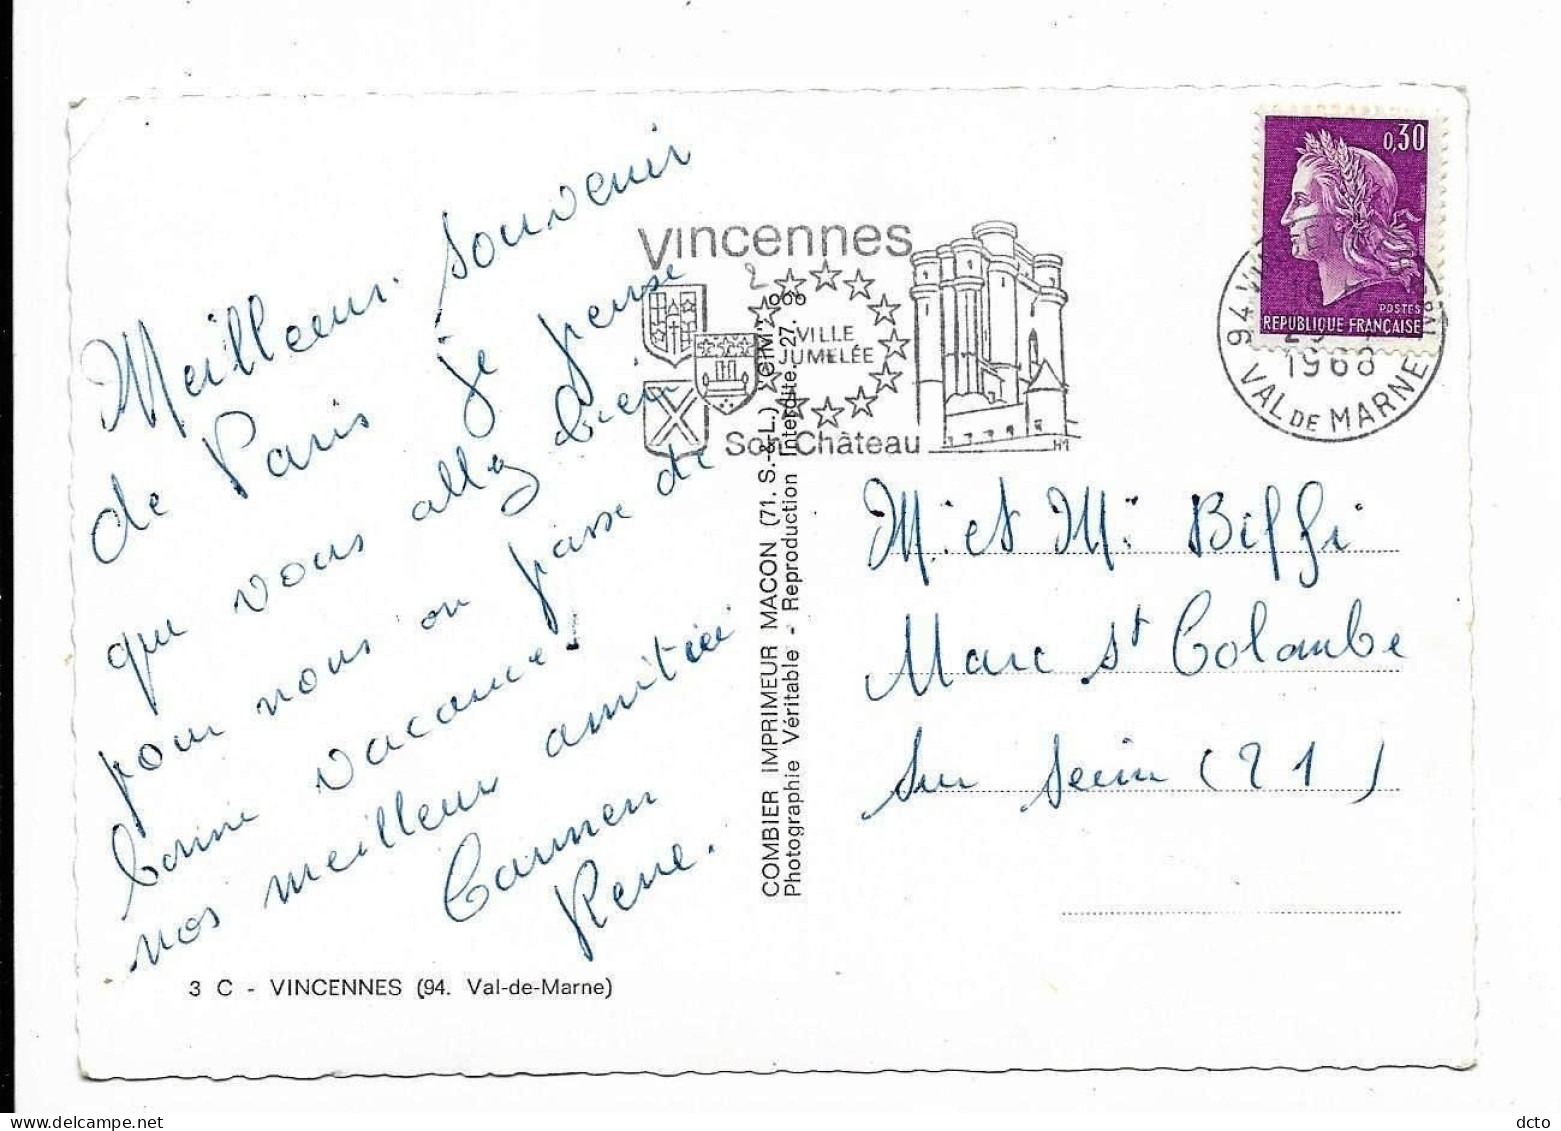 Meilleur souvenir
de Paris je pense
que vous allez bien
pour nous on passe de
bonne vacance!
nos meilleur amitiée
Carmen
Rene.
3 C - VINCENNES (94. Val-de-Marne)
COMBIER IMPRIMEUR MACON (71. S.-&-L.) "CIM"
Photographie Véritable - Reproduction Interdite. 27.
Vincennes
VILLE
JUMELÉE
Son Château
HM
0,30
POSTES
REPUBLIQUE FRANÇAISE
94
1968
VAL DE MARNE
M. et M: Biffi
Marc st Colombe
sur Seine (21)
dcto